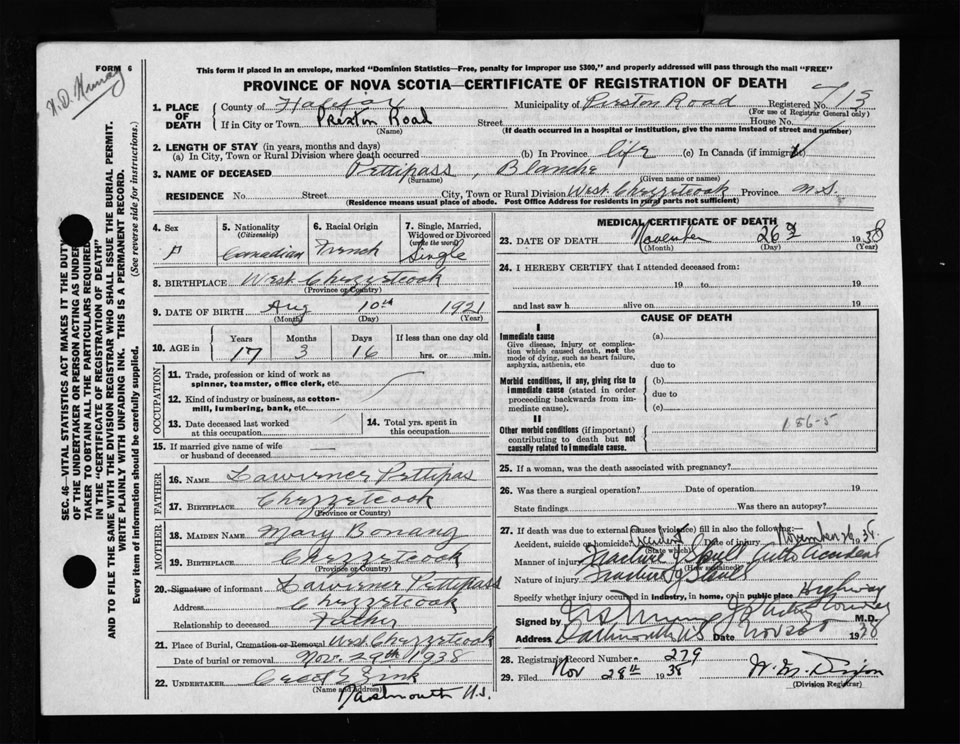 FORM 6
This form if placed in an envelope, marked "Dominion Statistics—Free, penalty for improper use $300," and properly addressed will pass through the mail "FREE"
PROVINCE OF NOVA SCOTIA—CERTIFICATE OF REGISTRATION OF DEATH
1. PLACE OF DEATH County of Halifax Municipality of Preston Road Registered No. 713
(For use of Registrar General only)
If in City or Town Preston Road Street House No.
(Name) (If death occurred in a hospital or institution, give the name instead of street and number)
2. LENGTH OF STAY (in years, months and days)
(a) In City, Town or Rural Division where death occurred (b) In Province life (c) In Canada (if immigrant)
3. NAME OF DECEASED Pettipass, Blanche
(Surname) (Given name or names)
RESIDENCE No. Street City, Town or Rural Division West Chezzetcook Province N.S.
(Residence means usual place of abode. Post Office Address for residents in rural parts not sufficient)
4. Sex F
5. Nationality (Citizenship) Canadian
6. Racial Origin French
7. Single, Married, Widowed or Divorced (write the word) Single
8. BIRTHPLACE West Chezzetcook
(Province or Country)
9. DATE OF BIRTH Aug 10th 1921
(Month) (Day) (Year)
10. AGE in Years 17 Months 3 Days 16 If less than one day old hrs. or min.
OCCUPATION
11. Trade, profession or kind of work as spinner, teamster, office clerk, etc.
12. Kind of industry or business, as cotton-mill, lumbering, bank, etc.
13. Date deceased last worked at this occupation
14. Total yrs. spent in this occupation
15. If married give name of wife or husband of deceased —
FATHER
16. NAME Lawrence Pettipas
17. BIRTHPLACE Chezzetcook
(Province or Country)
MOTHER
18. MAIDEN NAME Mary Bonang
19. BIRTHPLACE Chezzetcook
(Province or Country)
20. Signature of informant Lawrence Pettipass
Address Chezzetcook
Relationship to deceased Father
21. Place of Burial, Cremation or Removal West Chezzetcook
Date of burial or removal Nov. 29th 1938
22. UNDERTAKER Cecil E Zink
(Name and address)
Dartmouth N.S.
MEDICAL CERTIFICATE OF DEATH
23. DATE OF DEATH November 26 1938
(Month) (Day) (Year)
24. I HEREBY CERTIFY that I attended deceased from:
19 to 19
and last saw h alive on 19
CAUSE OF DEATH
I
Immediate cause (a)
Give disease, injury or complication which caused death, not the mode of dying, such as heart failure, asphyxia, asthenia, etc
due to
Morbid conditions, if any, giving rise to immediate cause (stated in order proceeding backwards from immediate cause).
(b)
due to
(c)
II
Other morbid conditions (if important) contributing to death but not causally related to immediate cause.
186-5
25. If a woman, was the death associated with pregnancy?
26. Was there a surgical operation? Date of operation 19
State findings Was there an autopsy?
27. If death was due to external causes (violence) fill in also the following:
Accident, suicide or homicide? Accident Date of injury November 26 1938
(State which)
Manner of injury Fracture of Skull Auto Accident
(How sustained)
Nature of injury Fracture of Skull
Specify whether injury occurred in industry, in home, or in public place Highway
Signed by M.D.
Address Dartmouth N.S. Date Nov 26 1938
28. Registrar's Record Number 279
29. Filed Nov 28th 1938
(Division Registrar)
SEC. 46—VITAL STATISTICS ACT MAKES IT THE DUTY OF THE UNDERTAKER OR PERSON ACTING AS UNDERTAKER TO OBTAIN ALL THE PARTICULARS REQUIRED IN THE "CERTIFICATE OF REGISTRATION OF DEATH"
AND TO FILE THE SAME WITH THE DIVISION REGISTRAR WHO SHALL ISSUE THE BURIAL PERMIT.
WRITE PLAINLY WITH UNFADING INK. THIS IS A PERMANENT RECORD.
Every item of information should be carefully supplied. (See reverse side for instructions.)